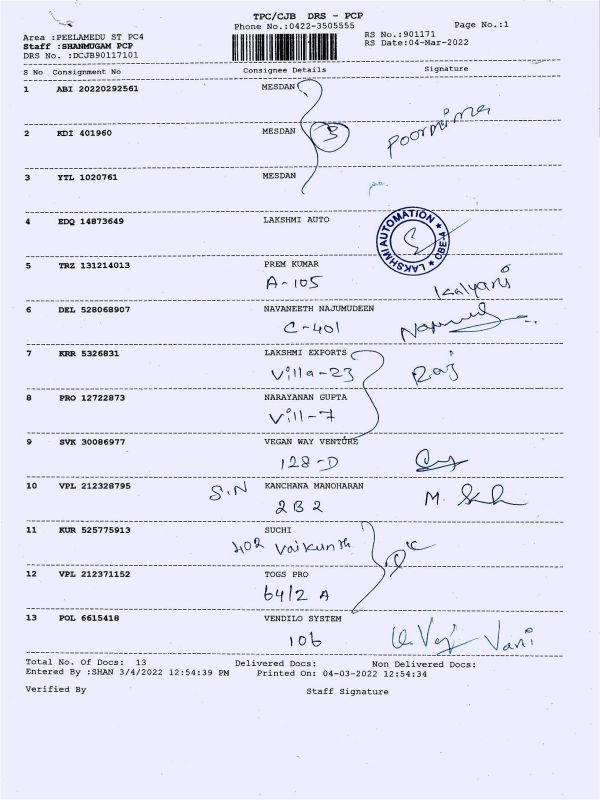 TPC/CJB DRS - PCP
Phone No.:0422-3505555
Page No.:1
Area :PEELAMEDU ST PC4
Staff :SHANMUGAM PCP
DRS No. :DCJB90117101
RS No.:901171
RS Date:04-Mar-2022
S No Consignment No Consignee Details Signature
1 ABI 20220292561 MESDAN
2 KDI 401960 MESDAN 3 Poornima
3 YTL 1020761 MESDAN
4 EDQ 14873649 LAKSHMI AUTO
LAKSHMI AUTOMATION ★ CBE-4 ★
5 TRZ 131214013 PREM KUMAR
A-105 Kalyani
6 DEL 528068907 NAVANEETH NAJUMUDEEN
C-401
7 KRR 5326831 LAKSHMI EXPORTS
Villa-23 Raj
8 PRO 12722873 NARAYANAN GUPTA
Vill-7
9 SVK 30086977 VEGAN WAY VENTURE
128-D
10 VPL 212328795 S.N KANCHANA MANOHARAN
2B2 M.
11 KUR 525775913 SUCHI
402 Vaikunth
12 VPL 212371152 TOGS PRO
64/2 A
13 POL 6615418 VENDILO SYSTEM
106 Vani
Total No. Of Docs: 13 Delivered Docs: Non Delivered Docs:
Entered By :SHAN 3/4/2022 12:54:39 PM Printed On: 04-03-2022 12:54:34
Verified By Staff Signature